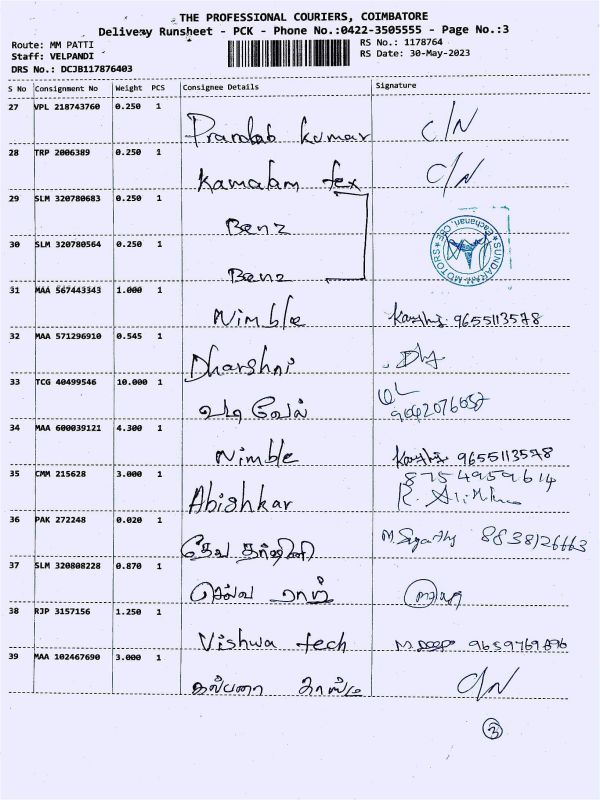 THE PROFESSIONAL COURIERS, COIMBATORE
Delivery Runsheet - PCK - Phone No.:0422-3505555 - Page No.:3
Route: MM PATTI RS No.: 1178764
Staff: VELPANDI RS Date: 30-May-2023
DRS No.: DCJB117876403
S No Consignment No Weight PCS Consignee Details Signature
27 VPL 218743760 0.250 1
kumar C/N
28 TRP 2006389 0.250 1
Kamalam tex C/N
29 SLM 320780683 0.250 1
Benz
30 SLM 320780564 0.250 1
SUNDARAM MOTORS
Eachanari, CBE
Benz
31 MAA 567443343 1.000 1
Nimble 9655113578
32 MAA 571296910 0.545 1
Dharshni
33 TCG 40499546 10.000 1
வடிவேல்
34 MAA 600039121 4.300 1
Nimble 9655113578
35 CMM 215628 3.000 1 8754959614
Abishkar
36 PAK 272248 0.020 1
தேவ தர்ஷினி 8838126663
37 SLM 320808228 0.870 1
செல்வ ராஜ்
38 RJP 3157156 1.250 1
Vishwa tech
39 MAA 102467690 3.000 1
கல்பனா C/N
3